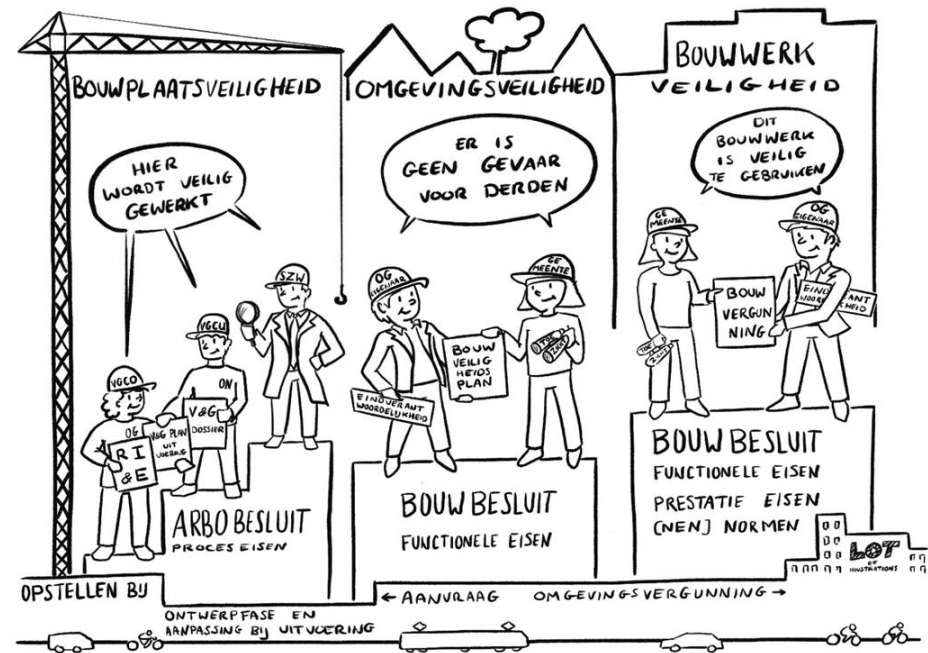 BOUWPLAATSVEILIGHEID
HIER
WORDT VEILIG
GEWERKT
SZW
VGCU
VGCO
ON
OG
RI
&E
V&G PLAN
UIT
VOERING
V&G
DOSSIER
ARBO BESLUIT
PROCES EISEN
OMGEVINGSVEILIGHEID
ER IS
GEEN GEVAAR
VOOR DERDEN
OG
EIGENAAR
GE
MEENTE
BOUW
VEILIG
HEIDS
PLAN
TOE
ZICHT
EINDVERANT
WOORDELIJKHEID
BOUW BESLUIT
FUNCTIONELE EISEN
BOUWWERK
VEILIGHEID
DIT
BOUWWERK
IS VEILIG
TE GEBRUIKEN
GE
MEENTE
OG
EIGENAAR
BOUW
VERGUN
NING
EIND ANT
WOORD KHEID
TOE
ZICHT
BOUW BESLUIT
FUNCTIONELE EISEN
PRESTATIE EISEN
(NEN) NORMEN
LOT
OF
ILLUSTRATIONS
OPSTELLEN BIJ
ONTWERPFASE EN
AANPASSING BIJ UITVOERING
← AANVRAAG OMGEVINGSVERGUNNING →